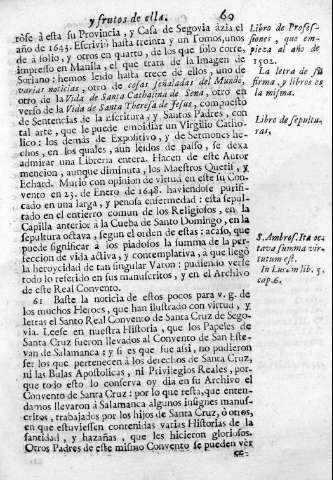 y frutos de ella. 69
rose à esta su Provincia, y Casa de Segovia ázia el
año de 1643. Escriviò hasta treinta y un Tomos, unos
de à folio, y otros en quarto, de los que solo corre,
impresso en Manila, el que trata de la Imagen de
Soriano: hemos leido hasta trece de ellos, uno de
varias noticias, otro de cosas señaladas del Mundo,
otro de la Vida de Santa Cathalina de Sena, otro en
verso de la Vida de Santa Theresa de Jesus, compuesto
de Sentencias de la Escritura, y Santos Padres, con
tal arte, que le puede embidiar un Virgilio Catho-
lico: los demás de Expositivo, y de Sermones he-
chos, en los quales, aun leidos de passo, se dexa
admirar una Libreria entera. Hacen de este Autor
mencion, aunque diminuta, los Maestros Quetif, y
Echard. Muriò con opinion de virtud en este su Con-
vento en 23. de Enero de 1648. haviendose purifi-
cado en una larga, y penosa enfermedad: està sepul-
tado en el entierro comun de los Religiosos, en la
Capilla anterior à la Cueba de Santo Domingo, en la
sepultura octava, segun el orden de estas: acaso, que
puede significar à los piadosos la summa de la per-
feccion de vida activa, y contemplativa, à que llegò
la heroycidad de tan singular Varon: pudiendo verse
todo lo referido en sus manuscritos, y en el Archivo
de este Real Convento.
61 Baste la noticia de estos pocos para v. g. de
los muchos Heroes, que han ilustrado con virtud, y
letras el Santo Real Convento de Santa Cruz de Sego-
via. Leese en nuestra Historia, que los Papeles de
Santa Cruz fueron llevados al Convento de San Este-
van de Salamanca: y si es que fue assi, no pudieron
ser los que pertenecen à los derechos de Santa Cruz,
ni las Bulas Apostolicas, ni Privilegios Reales, por-
que todo esto lo conserva oy dia en su Archivo el
Convento de Santa Cruz: por lo que resta, que enten-
damos llevaron à Salamanca algunos insignes manus-
critos, trabajados por los hijos de Santa Cruz, ò otros,
en que estuviessen contenidas varias Historias de la
santidad, y hazañas, que les hicieron gloriosos.
Otros Padres de este mismo Convento se pueden ver
Libro de Profes-
siones, que em-
pieza al año de
1502.
La letra de su
firma, y libros es
la misma.
Libro de sepultu-
ras,
S. Ambros. Ita oc
tava summa vir-
tutum est.
In Lucam lib. 5.
cap. 6.